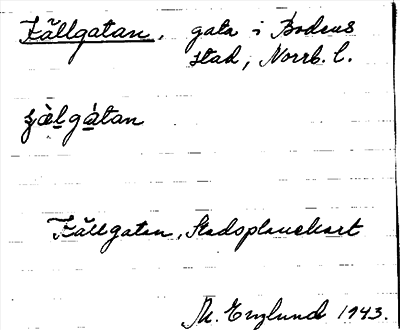 Källgatan, gata i Bodens
stad, Norrb. l.
gatan
Källgatan, Stadsplanekart
M. Englund 1943.